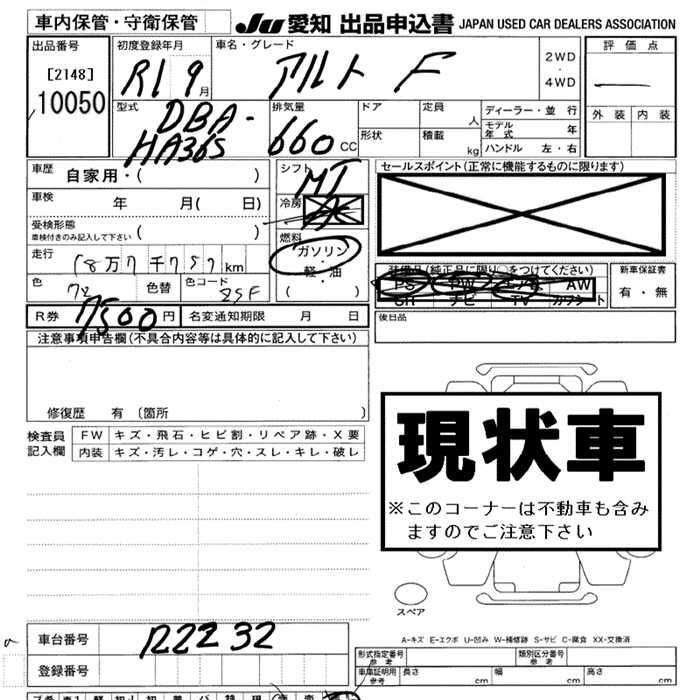 車内保管・守衛保管
JU 愛知 出品申込書 JAPAN USED CAR DEALERS ASSOCIATION
出品番号
[2148]
10050
初度登録年月
R1 9月
車名・グレード
アルト F
2WD
・
4WD
評価点
外装 内装
型式
DBA-
HA36S
排気量
660CC
ドア
形状
定員 人
積載 kg
ディーラー・並行
モデル年式 年
ハンドル 左・右
車歴 自家用・( )
車検 年 月( 日)
受検形態
車検付きのみ記入して下さい ( )
走行
万7千757km
色 色替 色コード
ZSF
シフト MT
冷房
燃料
ガソリン・
軽・油
( )
セールスポイント(正常に機能するものに限ります)
装備品(純正品に限り○をつけてください)
PS PW エアB AW
SR ナビ TV カワシート
新車保証書
有・無
R券 7500円
名変通知期限 月 日
後日品
注意事項申告欄(不具合内容等は具体的に記入して下さい)
修復歴 有 (箇所 )
検査員記入欄
FW キズ・飛石・ヒビ割・リペア跡・X要
内装 キズ・汚レ・コゲ・穴・スレ・キレ・破レ
現状車
※このコーナーは不動車も含み
ますのでご注意下さい
スペア
A-キズ E-エクボ U-凹み W-補修跡 S-サビ C-腐食 XX-交換済
車台番号 122232
登録番号
形式指定番号
参考
類別区分番号
参考
車庫証明用
参考
長さ cm 幅 cm 高さ cm